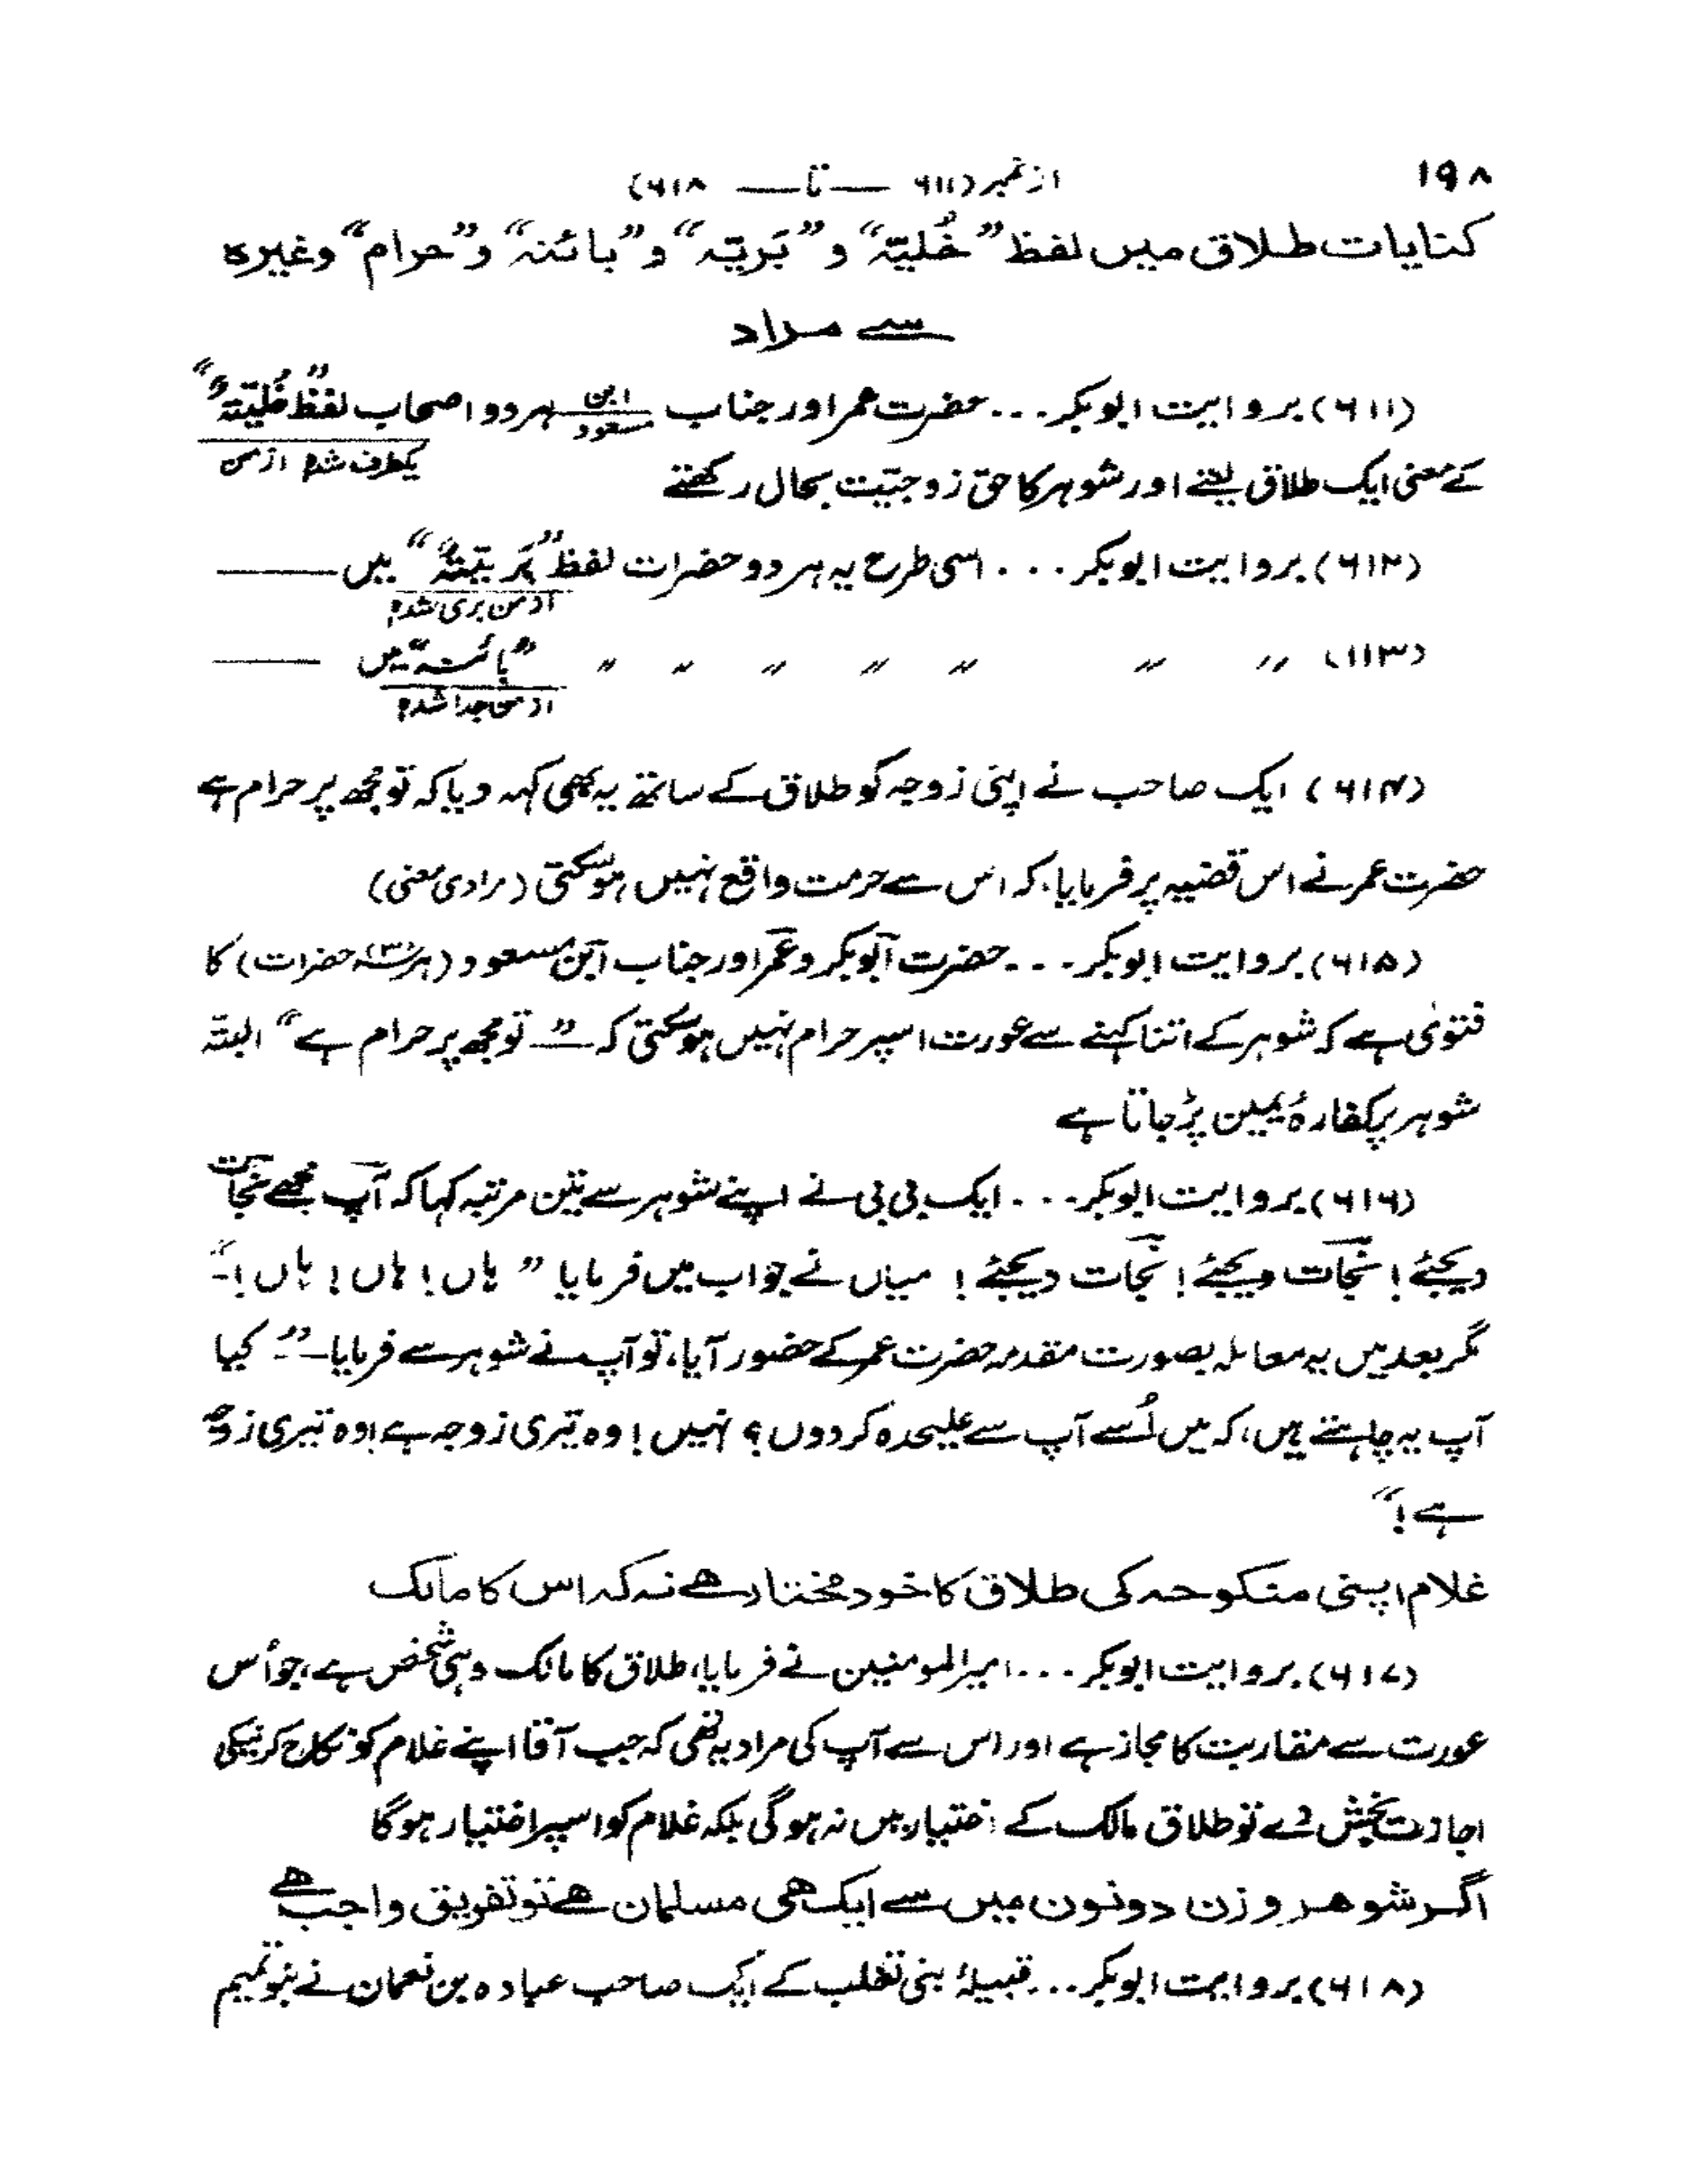 ۱۹۸
از نمبر (۶۱۱ — تا — ۶۱۸)
کنایات طلاق میں لفظ ”خُلیّۃ“ و ”بَریّہ“ و ”بائنہ“ و ”حرام“ وغیرہ
سے مراد
(۶۱۱) بروایت ابوبکر ... حضرت عمر اور جناب ابن مسعود ہر دو اصحاب لفظ ”خُلیّۃ“
یکطرف شدہ از من
کے معنی ایک طلاق لیتے اور شوہر کا حق زوجیّت بحال رکھتے
(۶۱۲) بروایت ابوبکر ... اسی طرح یہ ہر دو حضرات لفظ ”بَریّۃ“ میں ——
از من بری شدہ
(۱۱۳) " " " " " " " " ”بائنہ“ میں ——
از من جدا شدہ
(۶۱۴) ایک صاحب نے اپنی زوجہ کو طلاق کے ساتھ یہ بھی کہہ دیا کہ تو مجھ پر حرام ہے
حضرت عمر نے اس قضیہ پر فرمایا، کہ اس سے حرمت واقع نہیں ہو سکتی (مرادی معنی)
(۶۱۵) بروایت ابوبکر ... حضرت ابوبکر و عمر اور جناب ابن مسعود (ہر سہ ۳ حضرات) کا
فتویٰ ہے کہ شوہر کے اتنا کہنے سے عورت اسپر حرام نہیں ہو سکتی کہ — ”تو مجھ پر حرام ہے“ البتہ
شوہر پر کفارۂ یمین پڑ جاتا ہے
(۶۱۶) بروایت ابوبکر ... ایک بی بی نے اپنے شوہر سے تین مرتبہ کہا کہ آپ مجھے نجات
دیجئے! نجات دیجئے! نجات دیجئے! میاں نے جواب میں فرمایا ”ہاں! ہاں! ہاں!“-
مگر بعد میں یہ معاملہ بصورت مقدمہ حضرت عمر کے حضور آیا، تو آپ نے شوہر سے فرمایا — ”کیا
آپ یہ چاہتے ہیں، کہ میں اُسے آپ سے علیحدہ کردوں؟ نہیں! وہ تیری زوجہ ہے! وہ تیری زوجہ
ہے!“
غلام اپنی منکوحہ کی طلاق کا خود مختار ہے نہ کہ اس کا مالک
(۶۱۷) بروایت ابوبکر ... امیر المومنین نے فرمایا، طلاق کا مالک وہی شخص ہے، جو اُس
عورت سے مقاربت کا مجاز ہے اور اس سے آپ کی مراد یہ تھی کہ جب آقا اپنے غلام کو نکاح کرنیکی
اجازت بخش دے تو طلاق مالک کے اختیار میں نہ ہوگی بلکہ غلام کو اسپر اختیار ہوگا
اگر شوہر و زن دونوں میں سے ایک ہی مسلمان ہے تو تفریق واجب ہے
(۶۱۸) بروایت ابوبکر ... قبیلۂ بنی تغلب کے ایک صاحب عبادہ بن نعمان نے بنو تمیم